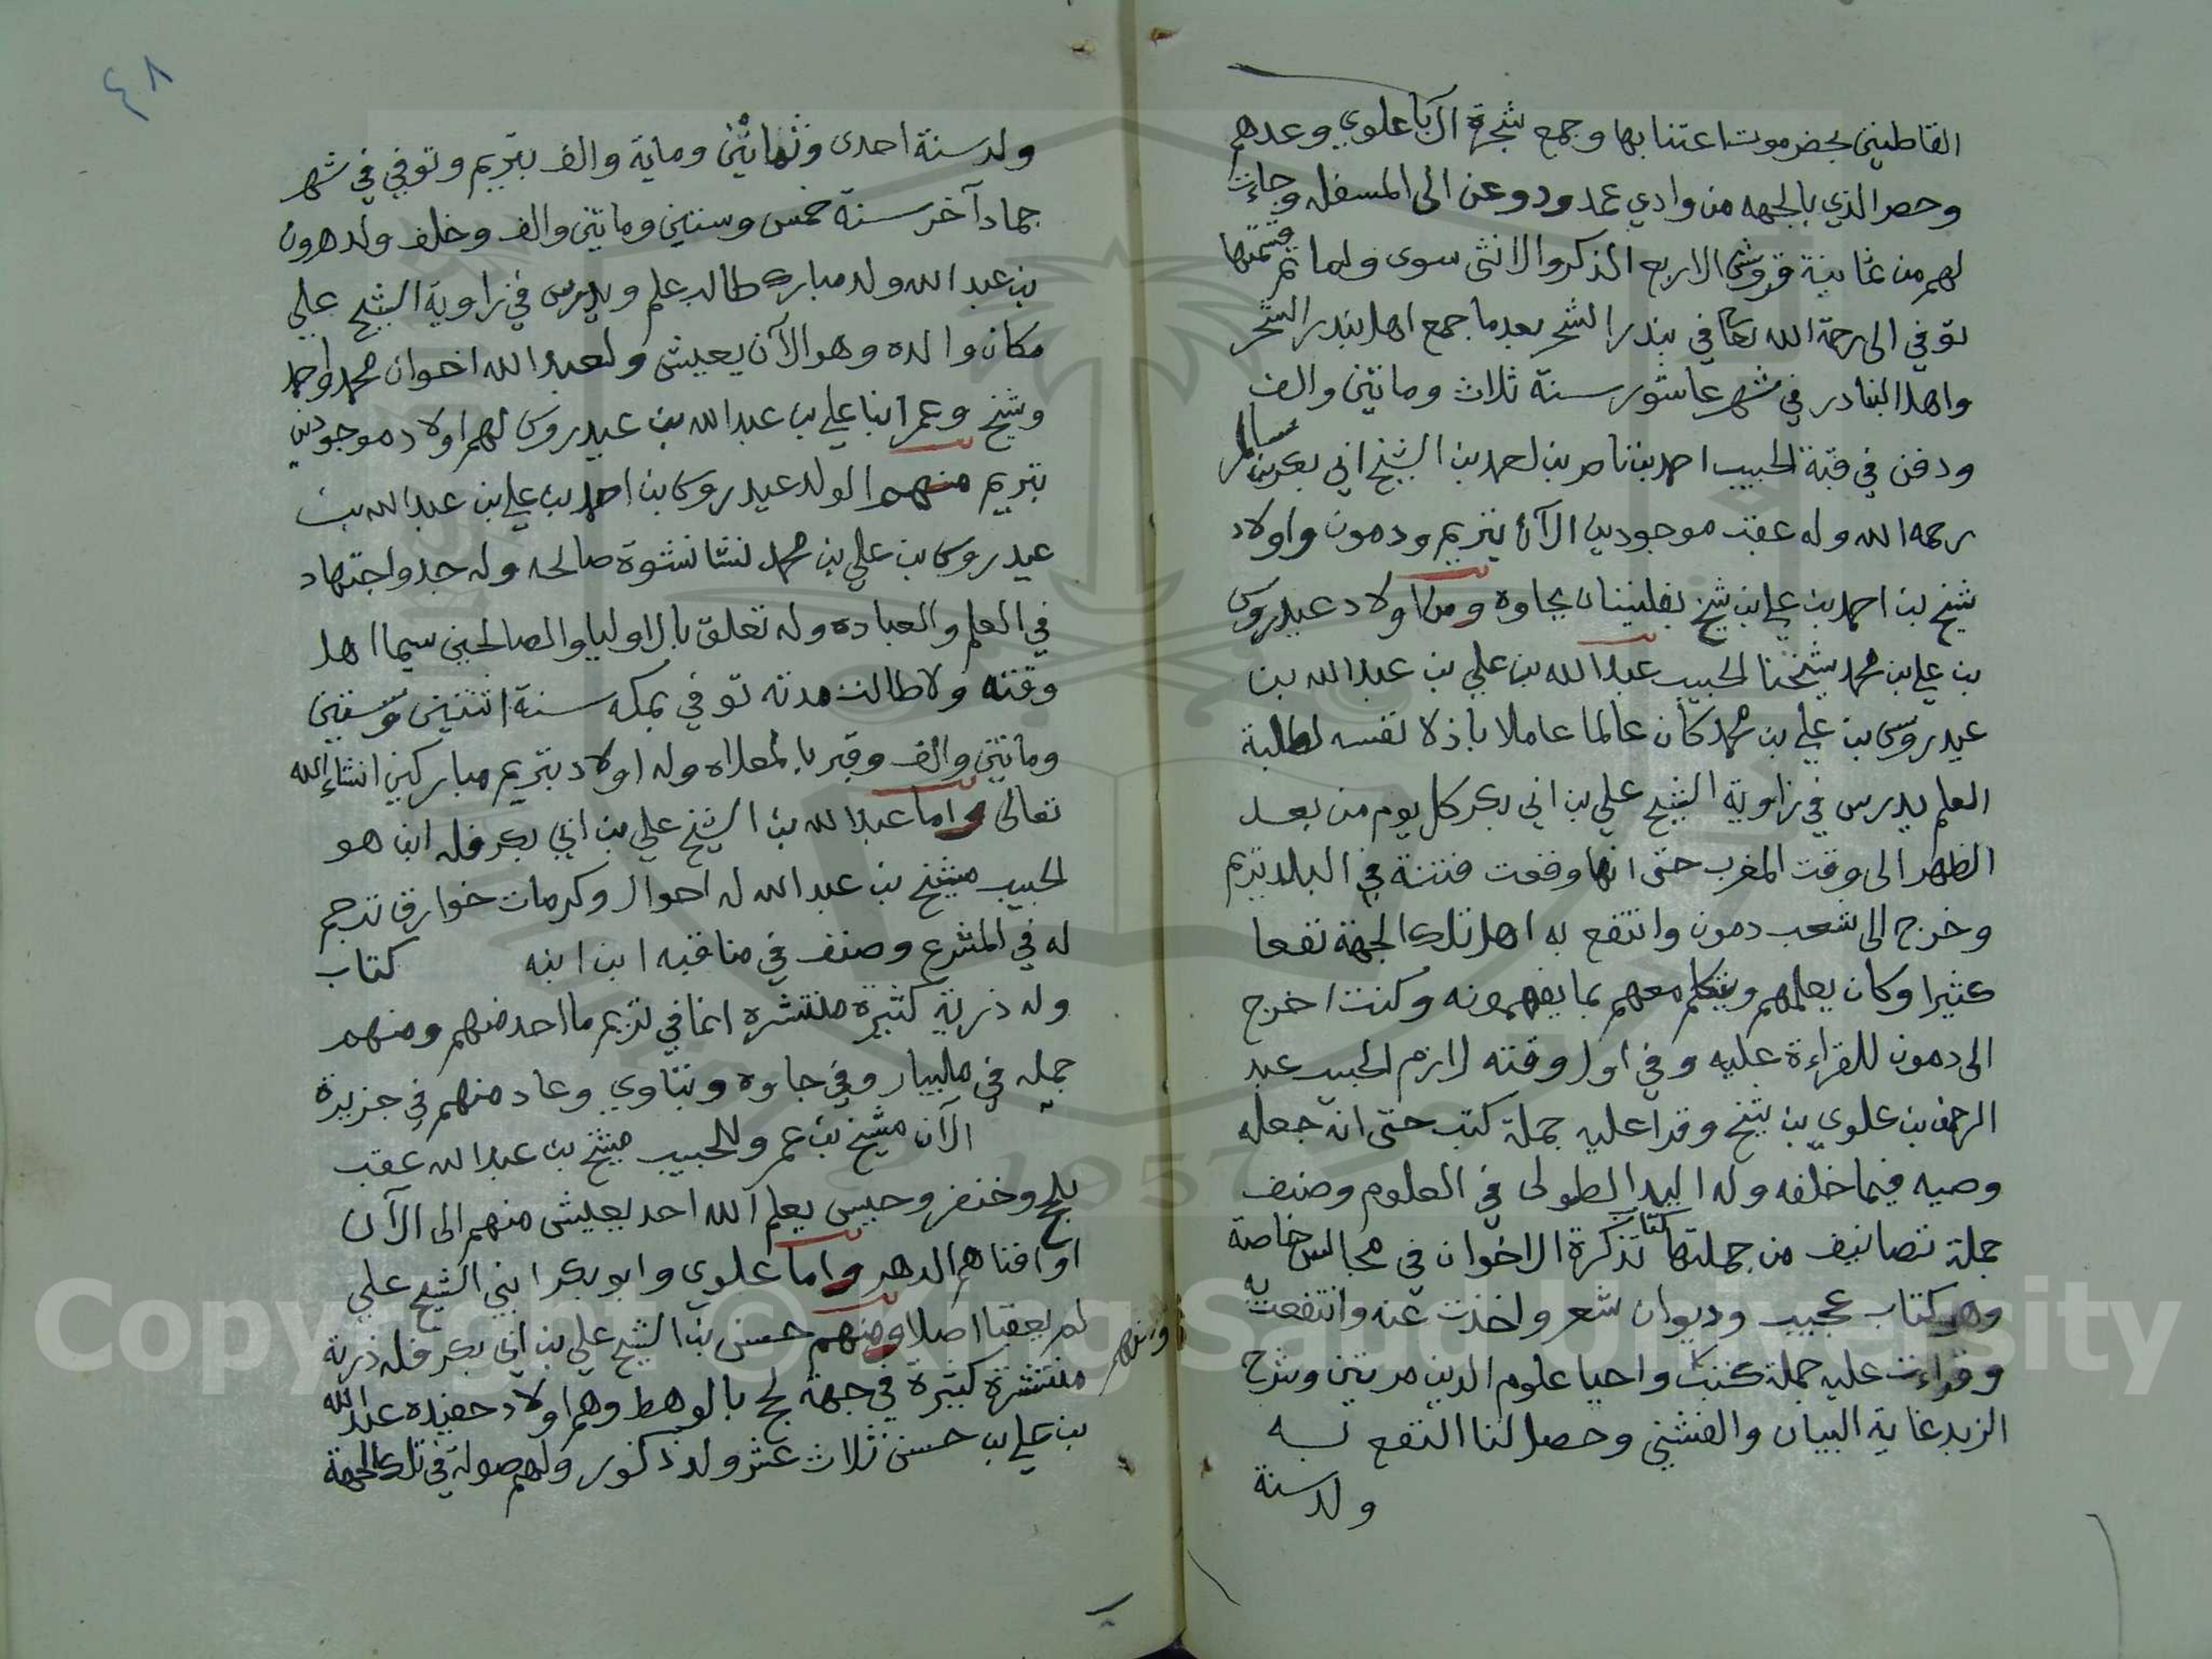 القاطنين بحضرموت اعتنا بها وجمع شجرة ال باعلوي وعدهم
وحصر الذي بالجهه من وادي عمد ودوعن الى المسفله وجاءت
لهم من ثمانية قروش الاربع الذكر والانثى سوى ولما تم قسمتها
توفي الى رحمة الله تعا في بندر الشحر بعدما جمع اهل بندر الشحر
واهل البنادر في شهر عاشور سنة ثلاث وماتين والف
ودفن في قبة الحبيب احمد بن ناصر بن احمد بن الشيخ ابي بكر بن سالم
رحمه الله وله عقب موجودين الآن بتريم ودمون واولاد
شيخ بن احمد بن علي بن شيخ بفلينبان بجاوه ومن اولاد عيدروس
بن علي بن محمد شيخنا الحبيب عبدالله بن علي بن عبدالله بن
عيدروس بن علي بن محمد كان عالما عاملا باذلا نفسه لطلبة
العلم يدرس في زاوية الشيخ علي بن ابي بكر كل يوم من بعد
الظهر الى وقت المغرب حتى انها وقعت فتنة في البلد تريم
وخرج الى شعب دمون وانتفع به اهل تلك الجهة نفعا
كثيرا وكان يعلمهم ويتكلم معهم بما يفهمونه وكنت اخرج
الى دمون للقراءة عليه وفي اول وقته لازم الحبيب عبد
الرحمن بن علوي بن شيخ وقرا عليه جملة كتب حتى انه جعله
وصيه فيما خلفه وله اليد الطولى في العلوم وصنف
جملة تصانيف من جملتها كتاب تذكرة الاخوان في مجالس خاصة
وهو كتاب عجيب وديوان شعر واخذت عنه وانتفعت به
وقراءت عليه جملة كتب واحيا علوم الدين مرتين وشرح
الزبد غاية البيان والفشني وحصل لنا النفع به
ولد سنة
٤٨
ولد سنة احدى وثمانين وماية والف بتريم وتوفي في شهر
جماد آخر سنة خمس وستين وماتين والف وخلف ولد هرون
بن عبد الله ولد مبارك طالب علم ويدرس في زاوية الشيخ علي
مكان والده وهو الآن يعيش ولعبد الله اخوان محمد واحمد
وشيخ وعمر ابنا علي بن عبد الله بن عيدروس لهم اولاد موجودين
بتريم منهم الولد عيدروس بن احمد بن علي بن عبد الله بن
عيدروس بن علي بن محمد نشا نشوة صالحه وله جد واجتهاد
في العلم والعباده وله تعلق بالاوليا والصالحين سيما اهل
وقته ولا طالت مدته توفي بمكه سنة اثنتين وستين
وماتين والف وقبر بالمعلاه وله اولاد بتريم مباركين انشاء الله
تعالى واما عبدالله بن الشيخ علي بن ابي بكر فله ابن هو
الحبيب مشيخ بن عبد الله له احوال وكرمات خوارق ترجم
له في المشرع وصنف في مناقبه ابن ابنه كتاب
وله ذرية كثيرة منتشره انما في تريم ما احد منهم ومنهم
جمله في مليبار وفي جاوه وبتاوي وعاد منهم في جزيرة
الآن مشيخ بن عمر وللحبيب مشيخ بن عبد الله عقب
بلحج وخنفر وحبيس يعلم الله احد يعيش منهم الى الآن
او افناهم الدهر واما علوي وابو بكر ابني الشيخ علي
لم يعقبا اصلا ومنهم حسن بن الشيخ علي بن ابي بكر فله ذرية
منتشرة كثيرة في جهة لحج بالوهط وهم اولاد حفيده عبد الله
بن علي بن حسن ثلاث عشر ولد ذكور ولهم صولة في تلك الجهة